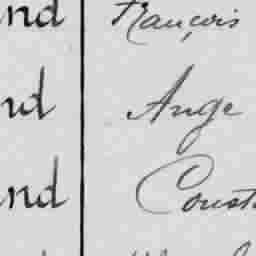 nd François
nd Ange
nd Const